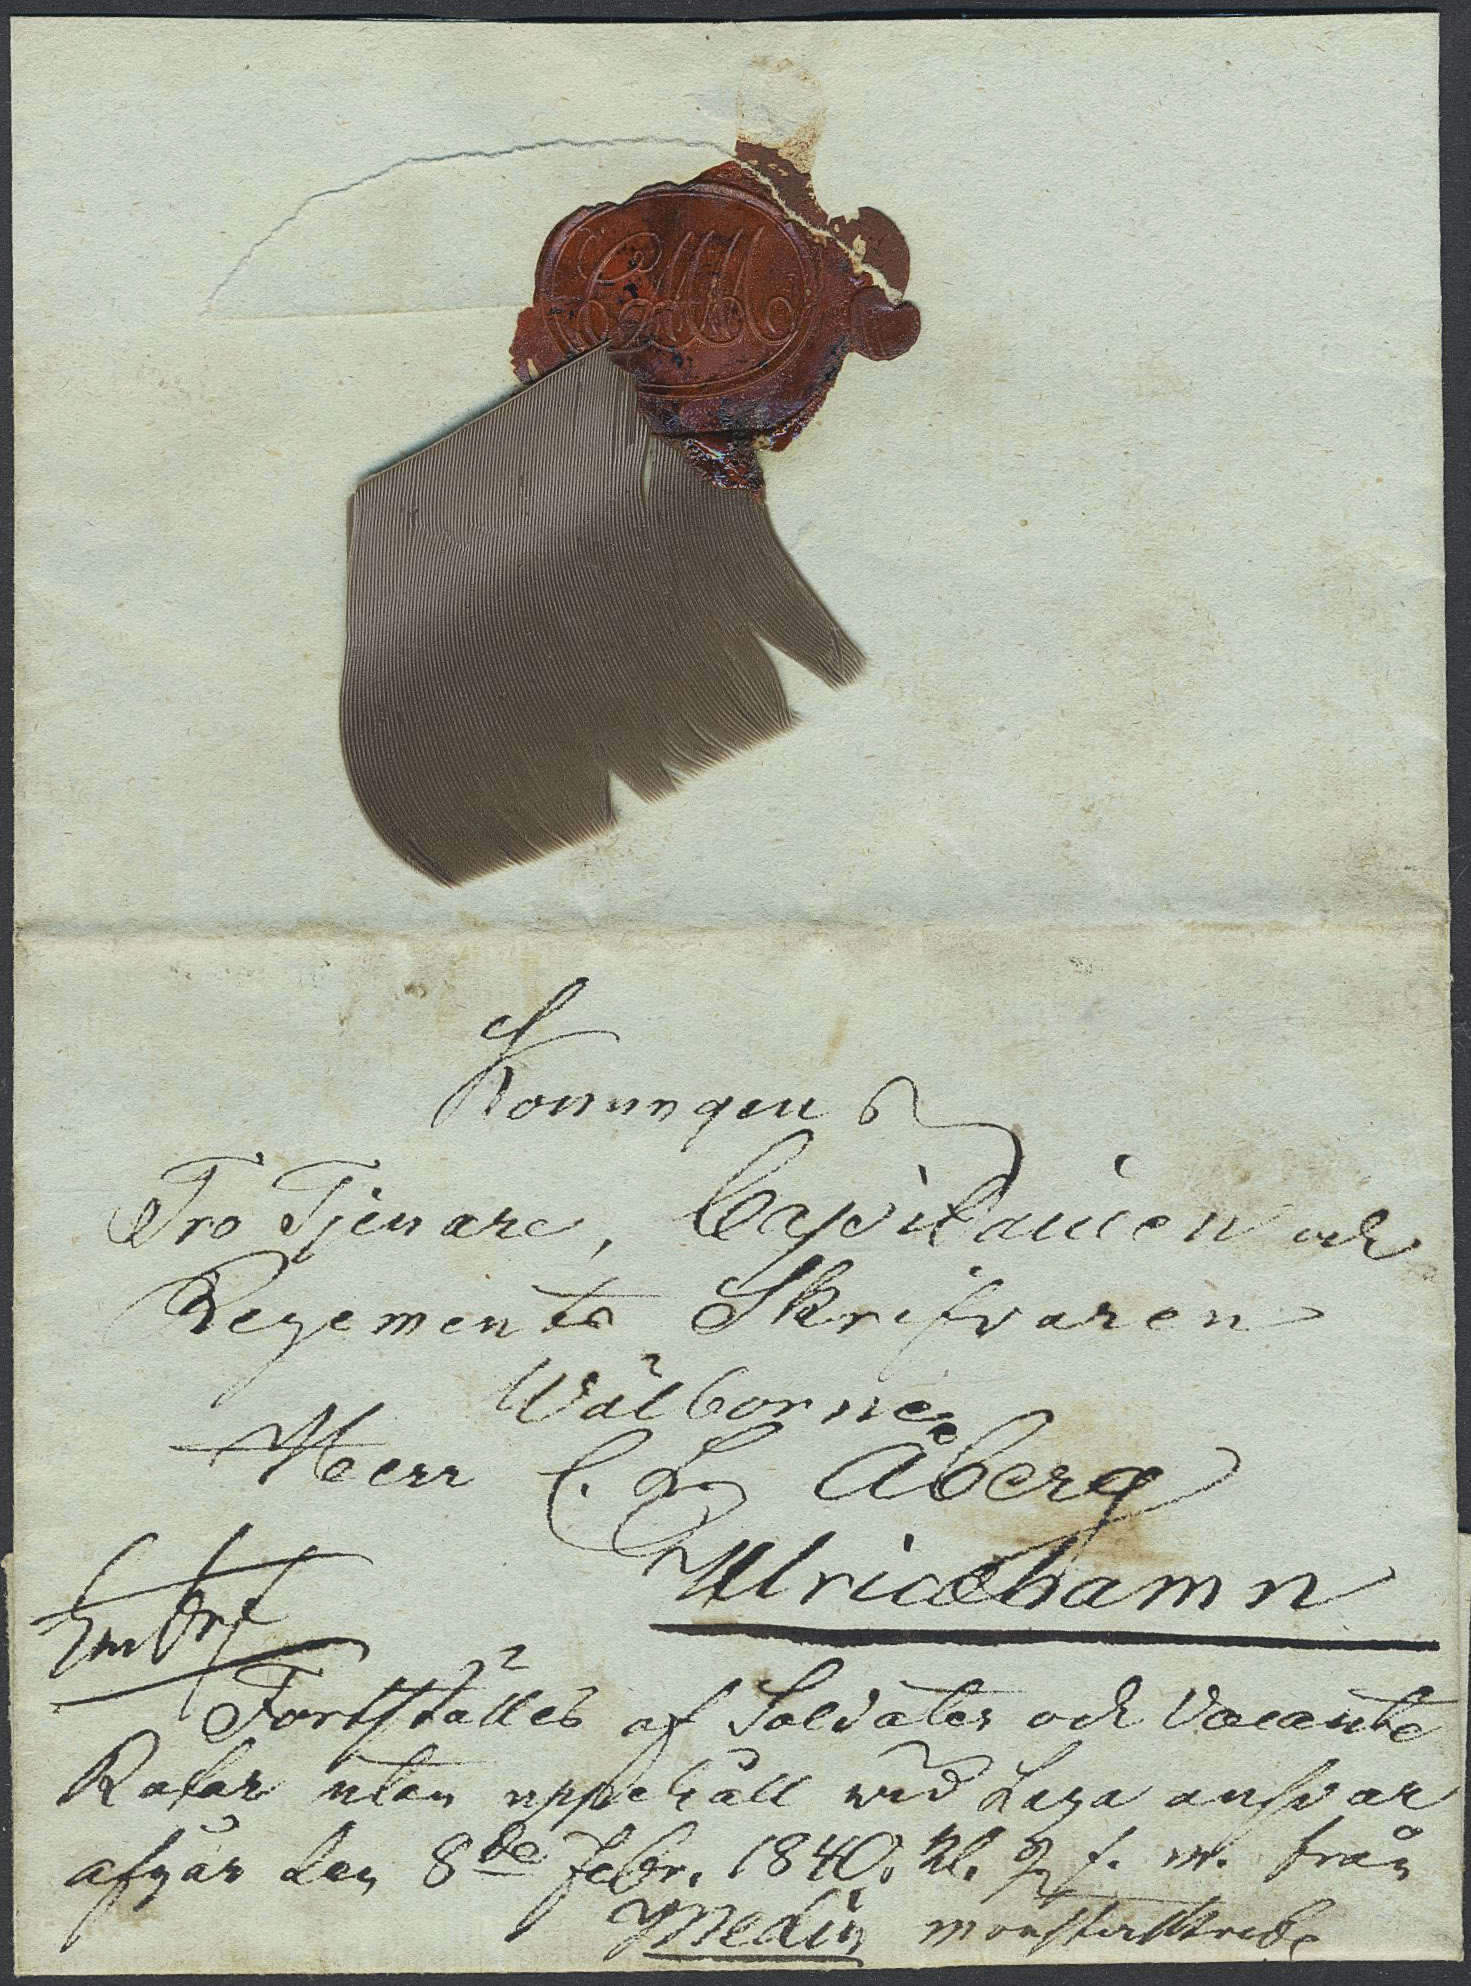 Konungens
Tro Tjenare, Capitainen och
Regements Skrifvaren
Wälborne
Herr C. L. Åberg
Ulricæhamn
Fortställes af Soldater och Vacante
Rotar utan uppehåll wid Laga answar
afgår den 8de Febr. 1840. kl. 9 f. m. från
Medin